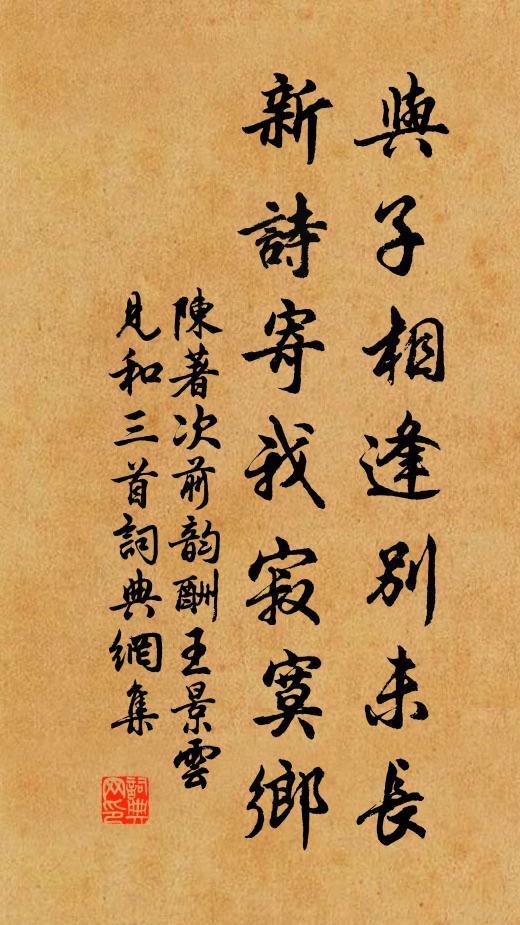 與子相逢別未長
新詩寄我寂寞鄉
陳著次前韵酬王景雲
見和三首詞典網集
詞典网印